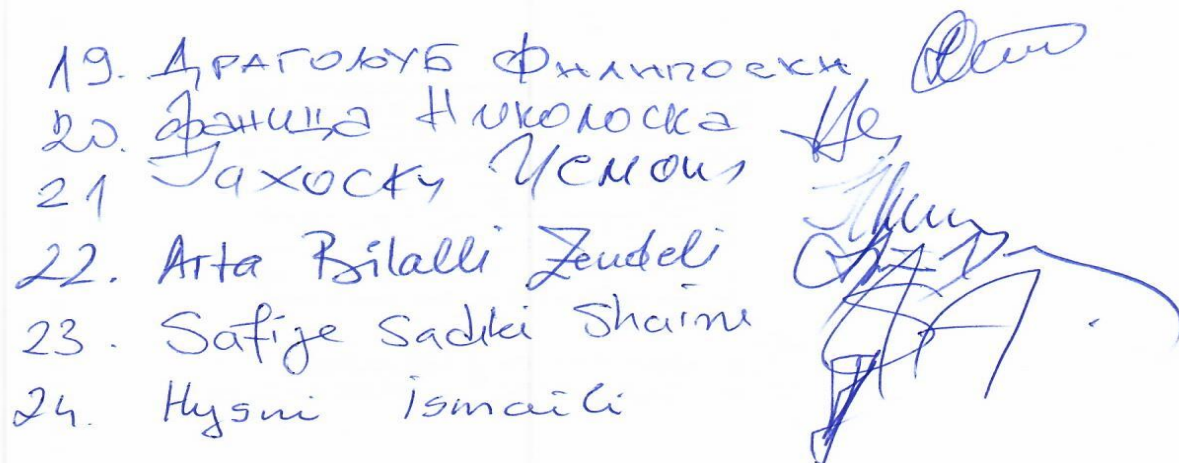 19. ДРАГОЉУБ ФИЛИПОСКИ
20. Фаница Николоска
21 Јахоски Исмаил
22. Arta Bilalli Zendeli
23. Safije Sadiki Shaini
24. Hysni ismaili